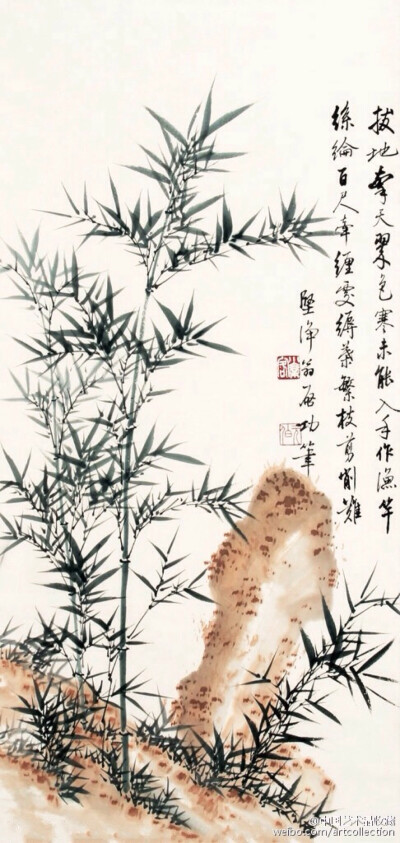 拔地拿天翠色寒未能入手作渔竿
丝纶百尺牵缠处缛叶繁枝剪削难
坚净翁启功笔
@中国艺术品收藏
weibo.com/artcollection